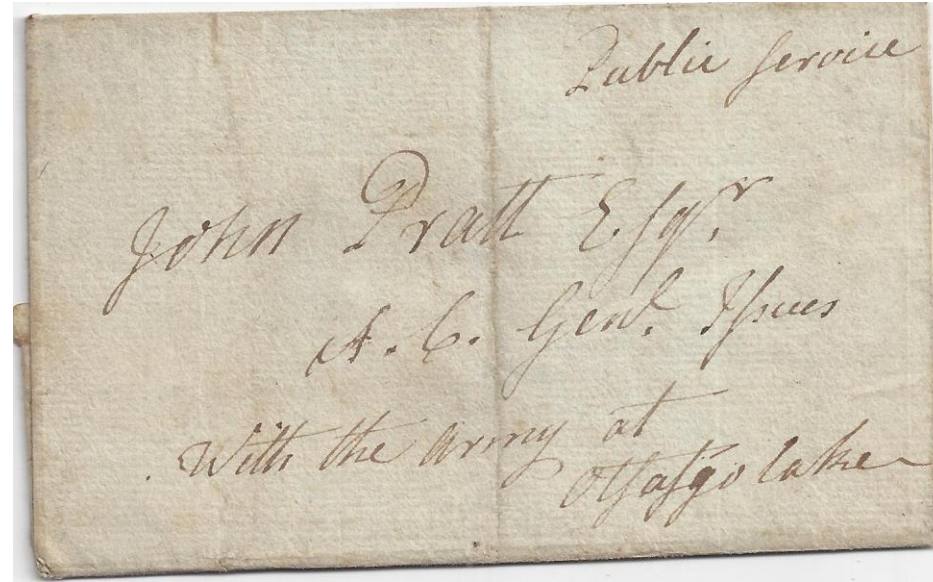 Public Service
John Pratt Esqr.
A. C. Genl. Issues
With the army at
Otsasgo lake